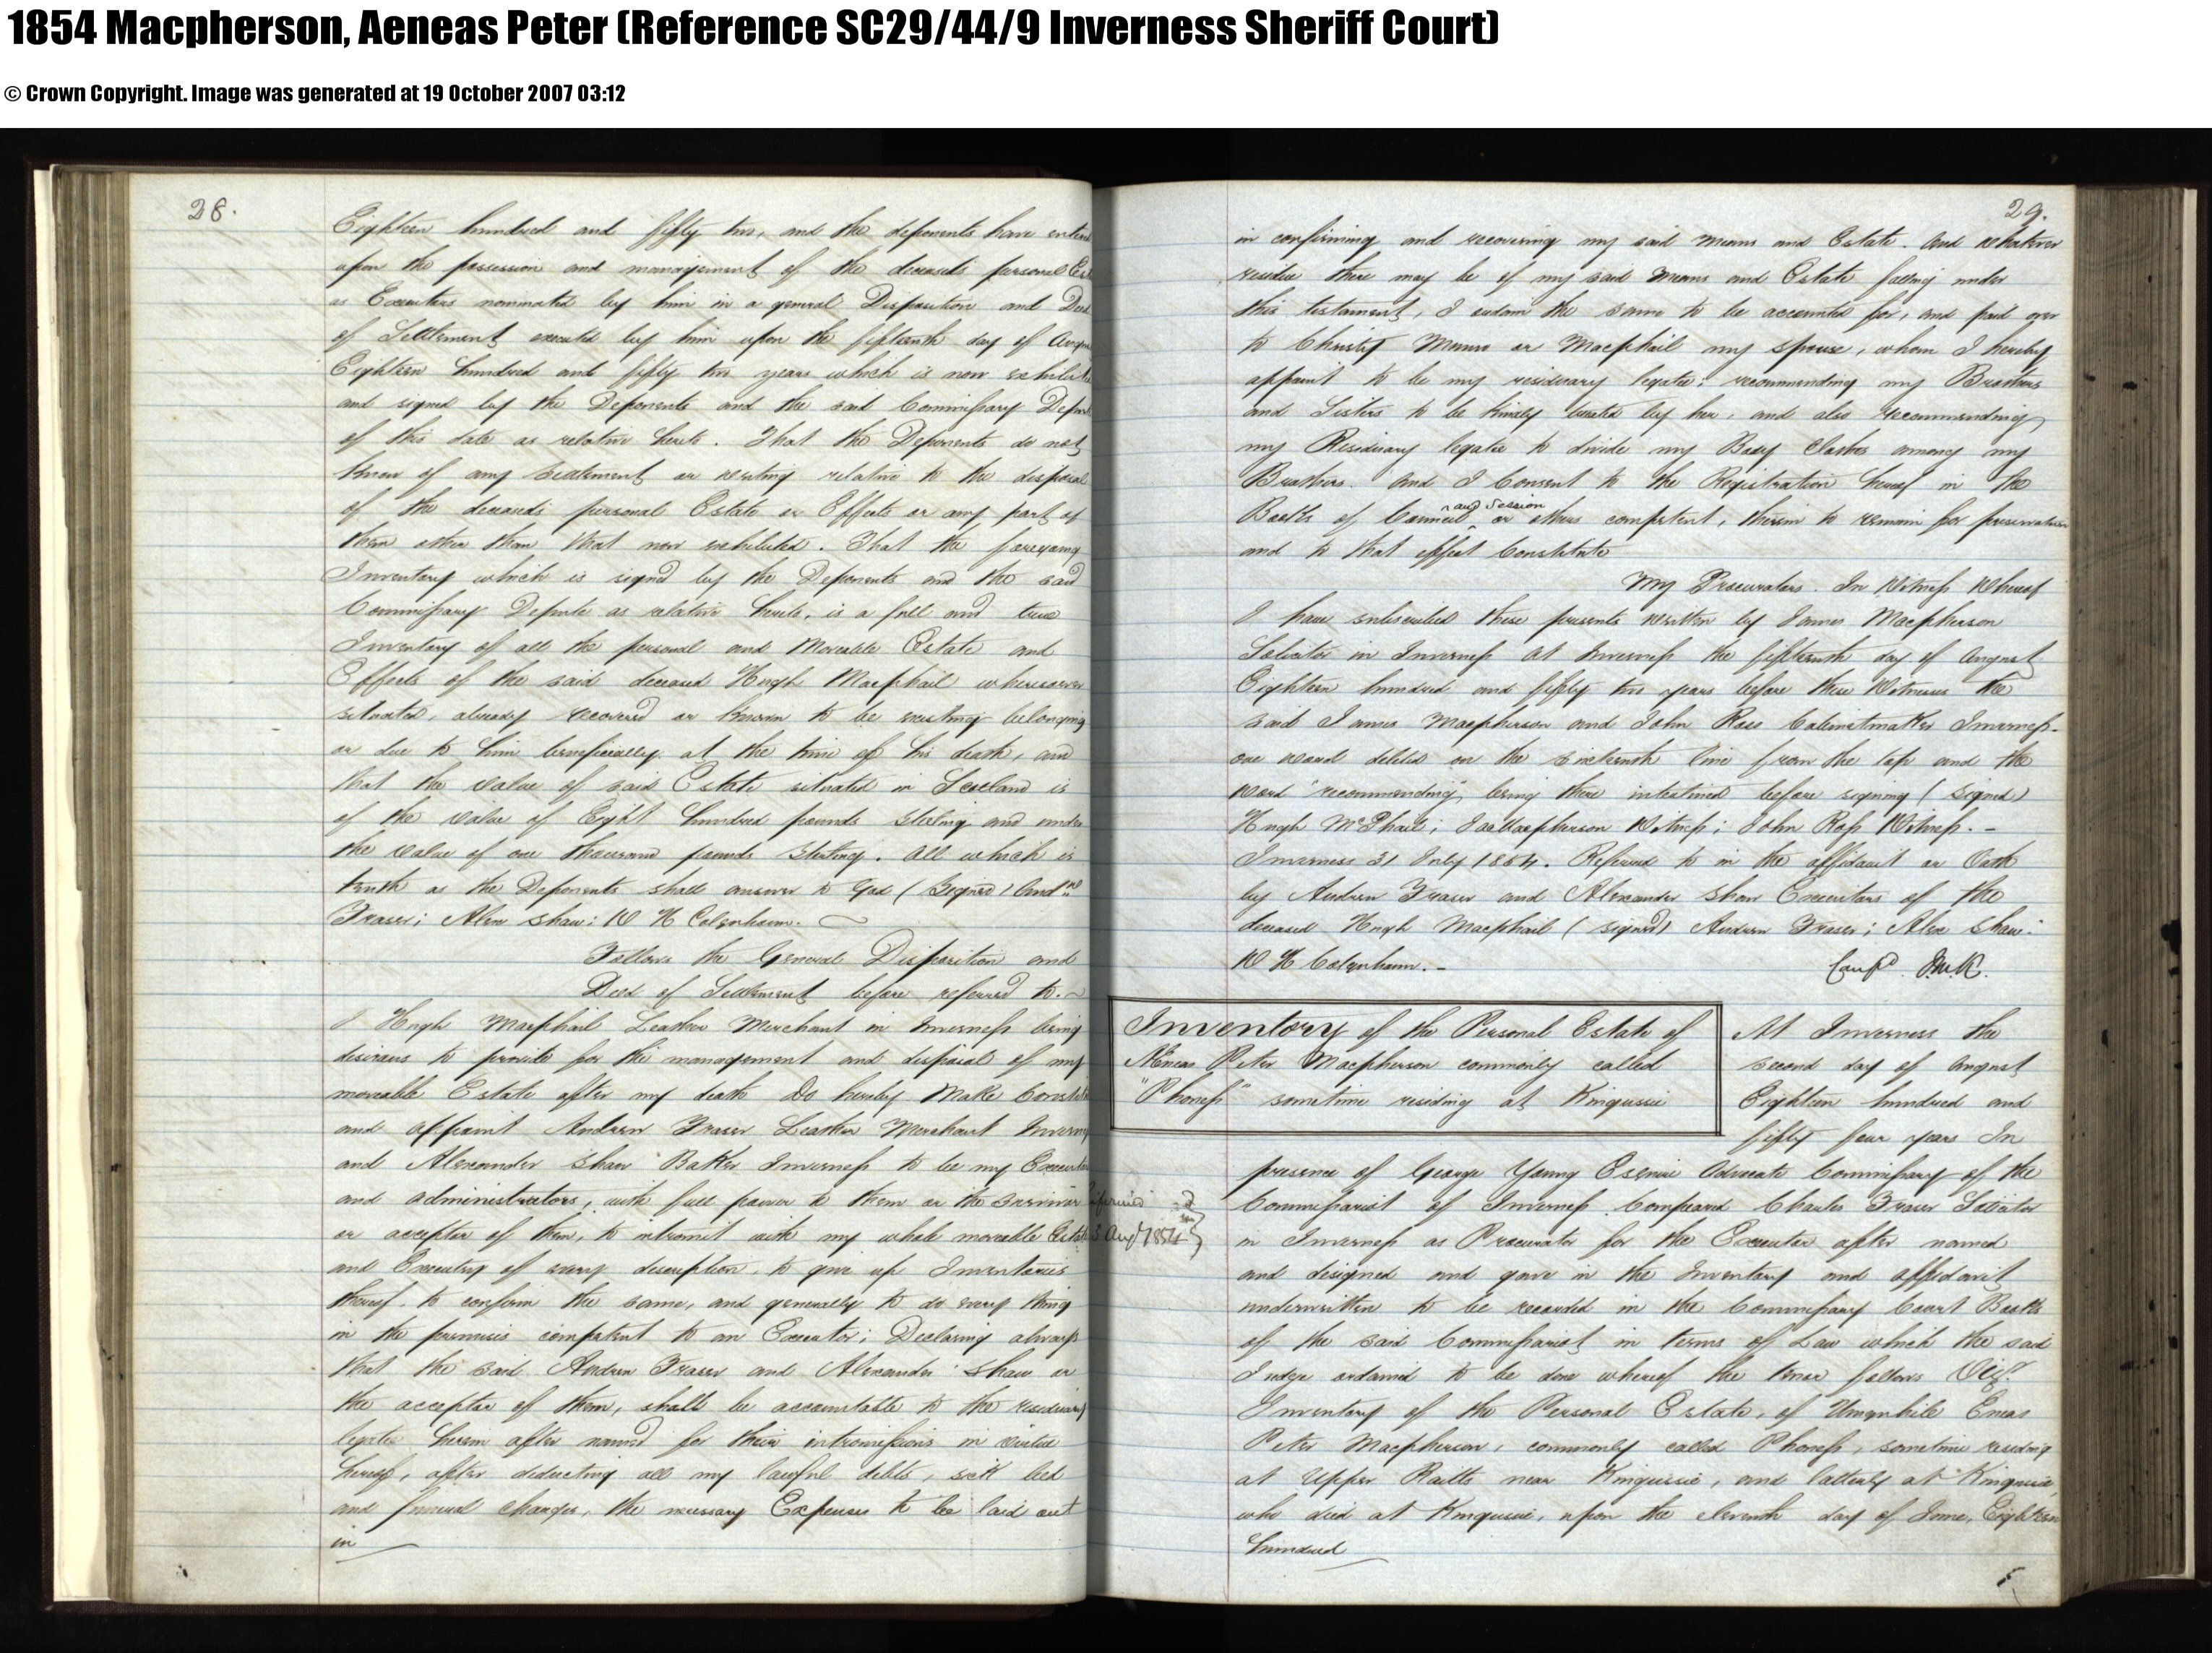 1854 Macpherson, Aeneas Peter (Reference SC29/44/9 Inverness Sheriff Court)
© Crown Copyright. Image was generated at 19 October 2007 03:12
28.
Eighteen hundred and fifty two, and the deponents have entered
upon the possession and management of the deceased's personal Est
as Executors nominated by him in a general Disposition and Deed
of Settlement executed by him upon the fifteenth day of August
Eighteen hundred and fifty two years which is now exhibited
and signed by the Deponents and the said Commissary Depute
of this date as relative hereto. That the Deponents do not
know of any Settlement or writing relative to the disposal
of the deceased's personal Estate or Effects or any part of
them other than that now exhibited. That the foregoing
Inventory which is signed by the Deponents and the said
Commissary Depute as relative hereto, is a full and true
Inventory of all the personal and Moveable Estate and
Effects of the said deceased Hugh Macphail wheresoever
situated, already recovered or known to be existing belonging
or due to him beneficially at the time of his death, and
that the value of said Estate situated in Scotland is
of the value of Eight hundred pounds Sterling and under
the value of one thousand pounds Sterling. All which is
truth as the Deponents shall answer to God (Signed) And.w
Fraser; Alexr Shaw: W H Colquhoun.
Follows the General Disposition and
Deed of Settlement before referred to.
I Hugh Macphail Leather Merchant in Inverness being
desirous to provide for the management and disposal of my
moveable Estate after my death Do hereby Make Constitute
and appoint Andrew Fraser Leather Merchant Inverness
and Alexander Shaw Baker Inverness to be my Executors
and administrators, with full power to them or the survivor
or acceptor of them, to intromit with my whole moveable Estate
and Executry of every description, to give up Inventories
thereof, to confirm the same, and generally to do every thing
in the premises competent to an Executor; Declaring always
that the said Andrew Fraser and Alexander Shaw or
the acceptor of them, shall be accountable to the residuary
legatee herein after named for their intromissions in virtue
hereof, after deducting all my lawful debts, sick bed
and funeral charges, the necessary Expenses to be laid out
in
29.
in confirming and recovering my said Means and Estate. And whatever
residue there may be of my said Means and Estate falling under
this testament, I ordain the same to be accounted for, and paid over
to Christy Munro or Macphail my spouse, whom I hereby
appoint to be my residuary legatee: recommending my Brothers
and Sisters to be kindly treated by her, and also recommending
my Residuary legatee to divide my Body Clothes among my
Brothers. And I Consent to the Registration hereof in the
Books of Council and Session or others competent, therein to remain for preservation
and to that effect Constitute
My Procurators. In Witness Whereof
I have subscribed these presents written by James Macpherson
Solicitor in Inverness At Inverness the fifteenth day of August
Eighteen hundred and fifty two years before these Witnesses the
said James Macpherson and John Ross Cabinetmaker Inverness.
one word deleted on the sixteenth line from the top and the
word "recommending" being there interlined before signing (Signed)
Hugh McPhail; Jas Macpherson Witness; John Ross Witness. -
Inverness 31 July 1854. Referred to in the affidavit or Oath
by Andrew Fraser and Alexander Shaw Executors of the
deceased Hugh Macphail (signed) Andrew Fraser; Alexr Shaw:
W H Colquhoun. -
Inventory of the Personal Estate of
Æneas Peter Macpherson commonly called
"Phoness" sometime residing at Kingussie
At Inverness the
second day of August
Eighteen hundred and
fifty four years In
Aug 1854
presence of George Young Esquire Advocate Commissary of the
Commissariot of Inverness Compeared Charles Fraser Solicitor
in Inverness as Procurator for the Executor after named
and designed and gave in the Inventory and affidavit
underwritten to be recorded in the Commissary Court Books
of the said Commissariot in terms of Law which the said
Judge ordained to be done whereof the tenor follows Vizt
Inventory of the Personal Estate, of Umquhile Eneas
Peter Macpherson, commonly called Phoness, sometime residing
at Upper Raitts near Kingussie, and latterly at Kingussie,
who died at Kingussie, upon the eleventh day of June, Eighteen
hundred